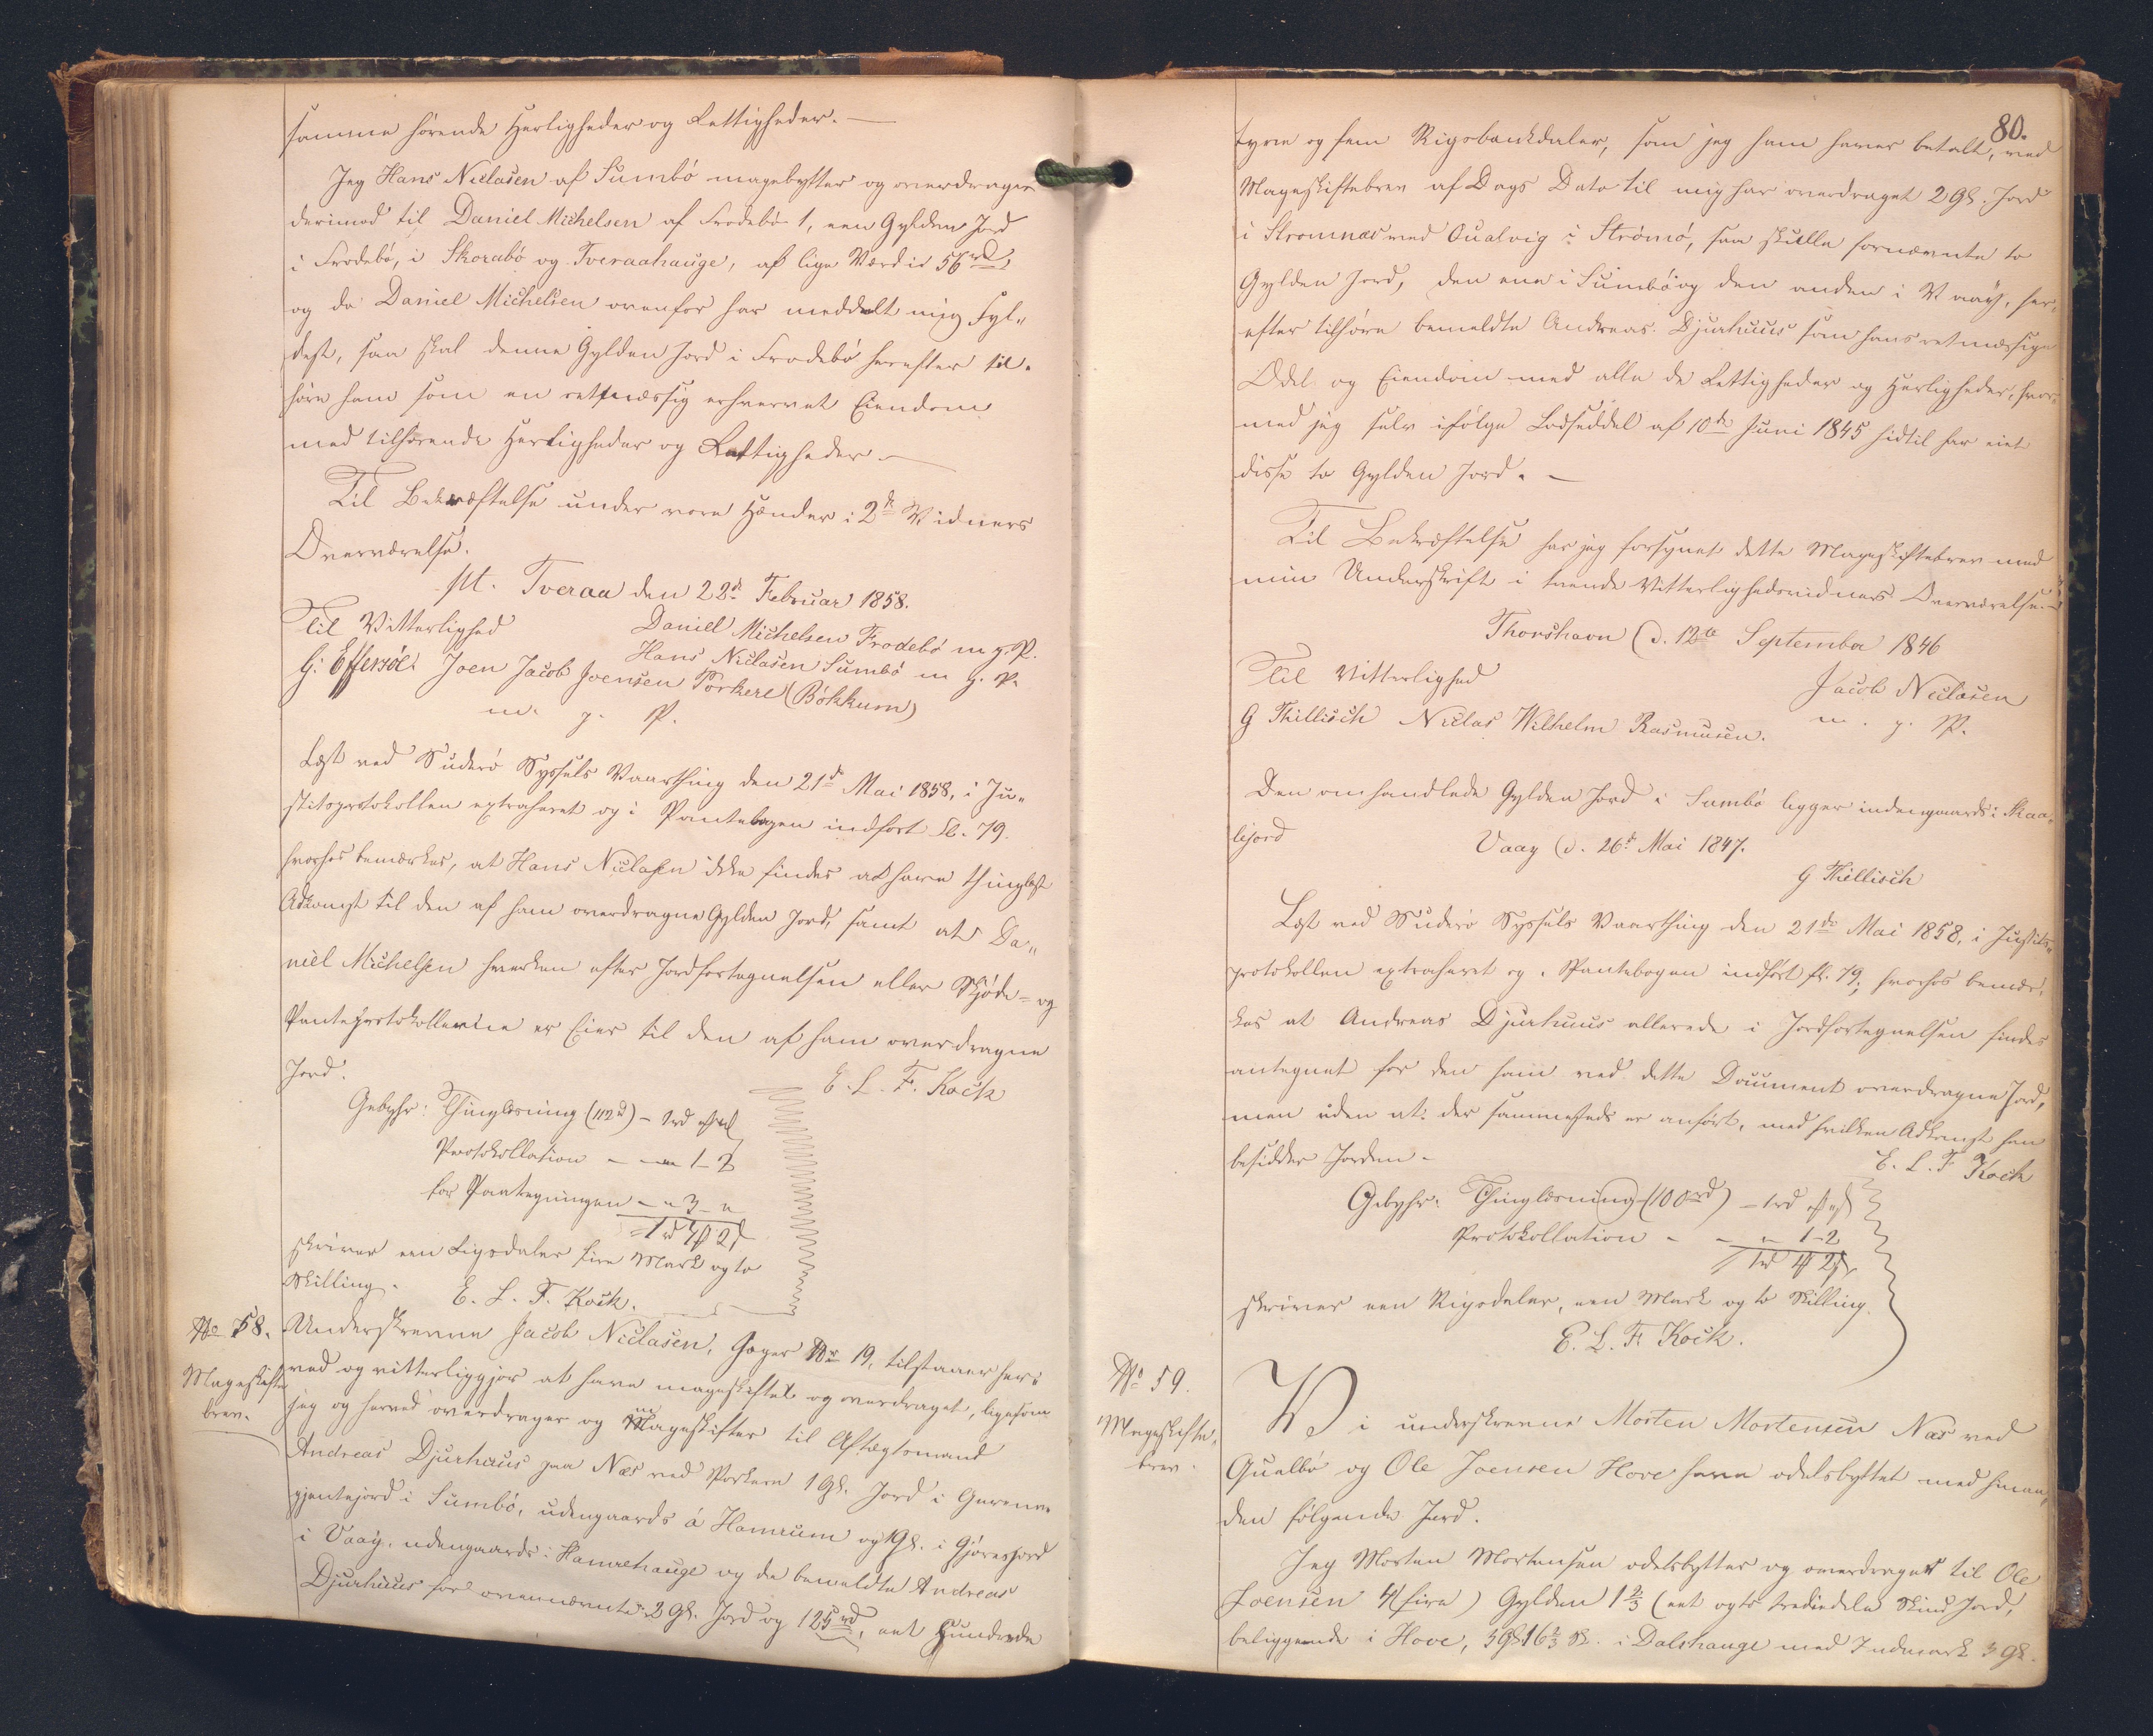 samme hørende Herligheder og Rettigheder. —
Jeg Hans Niclasen af Sumbø magebytter og overdrager
derimod til Daniel Michelsen af Frodebø 1, een Gylden Jord
i Frodebø, i Skorabø og Tveraahauge, af lige Værdie 56 rd
og da Daniel Michelsen ovenfor har meddelt mig Fyl„
dest, saa skal denne Gylden Jord i Frodebø herefter til„
høre ham som en retmæssig erhvervet Eiendom
med tilhørende Herligheder og Rettigheder —
Til Bekræftelse under vore Hænder i 2de Vidners
Overværelse.
pt. Tveraa den 22de Februar 1858.
Til Vitterlighed
Daniel Michelsen Frodebø m. g. P.
Hans Niclasen Sumbø m. g. P.
G. Effersøe. Joen Jacob Joensen Porkere (Bökkum)
m. g. P.
Læst ved Suderø Syssels Vaarthing den 21de Mai 1858, i Ju„
stitsprotokollen extraheret og i Pantebogen indført fol. 79.
hvorhos bemærkes, at Hans Niclasen ikke findes at have thinglæst
Adkomst til den af ham overdragne Gylden Jord, samt at Da„
niel Michelsen hverken efter Jordfortegnelsen eller Skjøde= og
Panteprotokollerne er Eier til den af ham overdragne
Jord.
E. L. F. Kock
Gebyhr: Thinglæsning (112 rd) – 1rd
Protokollation – – 1–2
for Paategningen – „ 3 – „
1rd 4 ℳ 2 ß
skriver een Rigsdaler fire Mark og to
Skilling.
E. L. F. Kock.
No 58.
Mageskifte
brev.
Underskrevne Jacob Niclasen, Jæger No 19, tilstaaer her„
ved og vitterliggjør at have mageskiftet og overdraget, ligesom
jeg og herved overdrager og mageskifter til Aftægtsmand
Andreas Djurhuus paa Næs ved Porkere 1 Gl. Jord i
gjentejord i Sumbø, udengaards á Hamrum og 1 Gl. i Gjøresjord
i Vaag, udengaards i Hamrehauge og da bemeldte Andreas
Djurhuus for ovennævnte 2 Gl. Jord og 125 rd, eet Hundrede
80.
tyve og fem Rigsbankdaler, som jeg ham haver betalt, ved
Mageskiftebrev af Dags Dato til mig har overdraget 2 Gl. Jord
i Stromnæs ved Qualvig i Strømø, saa skulle fornævnte to
Gylden Jord, den ene i Sumbø og den anden i Vaag, her„
efter tilhøre bemeldte Andreas Djurhuus som hans retmæssige
Odel og Eiendom med alle de Rettigheder og Herligheder, hvor„
med jeg selv ifølge Lodseddel af 10de Juni 1845 hidtil har eiet
disse to Gylden Jord. —
Til Bekræftelse har jeg forsynet dette Mageskiftebrev med
min Underskrift i tvende Vitterlighedsvidners Overværelse. —
Thorshavn d. 12te September 1846
Til Vitterlighed
Jacob Niclasen
G Tillisch Niclas Wilhelm Rasmusen.
m. g. P.
Den omhandlede Gylden Jord i Sumbø ligger indengaards i Skaa„
lejord
Vaag d. 26de Mai 1847.
G Tillisch
Læst ved Suderø Syssels Vaarthing den 21de Mai 1858, i Justits„
protokollen extraheret og i Pantebogen indført fol. 79; hvorhos bemær„
kes at Andreas Djurhuus allerede i Jordfortegnelsen findes
antegnet for den ham ved dette Document overdragne Jord,
men uden at der sammesteds er anført, med hvilken Adkomst han
besidder Jorden –
E. L. F Kock
Gebyhr: Thinglæsning (100 rd) – 1rd
Protokollation – – „ 1–2
1rd 1 ℳ 2 ß
skriver een Rigsdaler, een Mark og to Skilling.
E. L. F. Kock.
No 59.
Mageskifte„
brev.
Vi underskrevne Morten Mortensen Næs ved
Qualbø og Ole Joensen Hove have odelsbyttet med hinan„
den følgende Jord.
Jeg Morten Mortensen odelsbytter og overdrager til Ole
Joensen 4 (fire) Gylden 1 2/3 (eet og to trediedele Skind Jord,
beliggende i Hove, 3 Gl 16 2/3 Sk. i Dalshauge med Indmark 3 Gl.